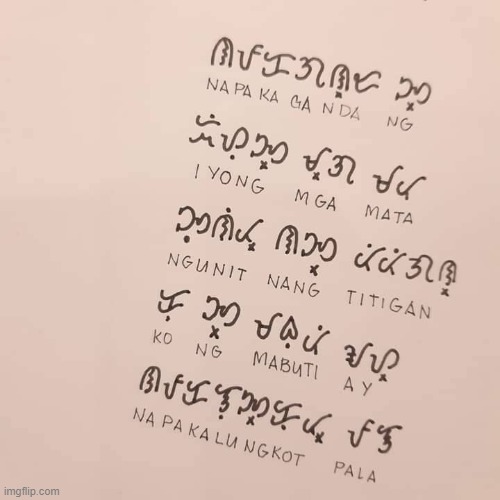 ᜈᜉᜃᜄᜈ᜔ᜇ ᜅ᜔
NAPAKA GANDA NG
ᜁᜌᜓᜅ᜔ ᜋ᜔ᜄ ᜋᜆ
IYONG MGA MATA
ᜅᜓᜈᜒᜆ᜔ ᜈᜅ᜔ ᜆᜒᜆᜒᜄᜈ᜔
NGUNIT NANG TITIGAN
ᜃᜓ ᜅ᜔ ᜋᜊᜓᜆᜒ ᜀᜌ᜔
KO NG MABUTI AY
ᜈᜉᜃᜎᜓᜅ᜔ᜃᜓᜆ᜔ ᜉᜎ
NAPAKALUNGKOT PALA
imgflip.com